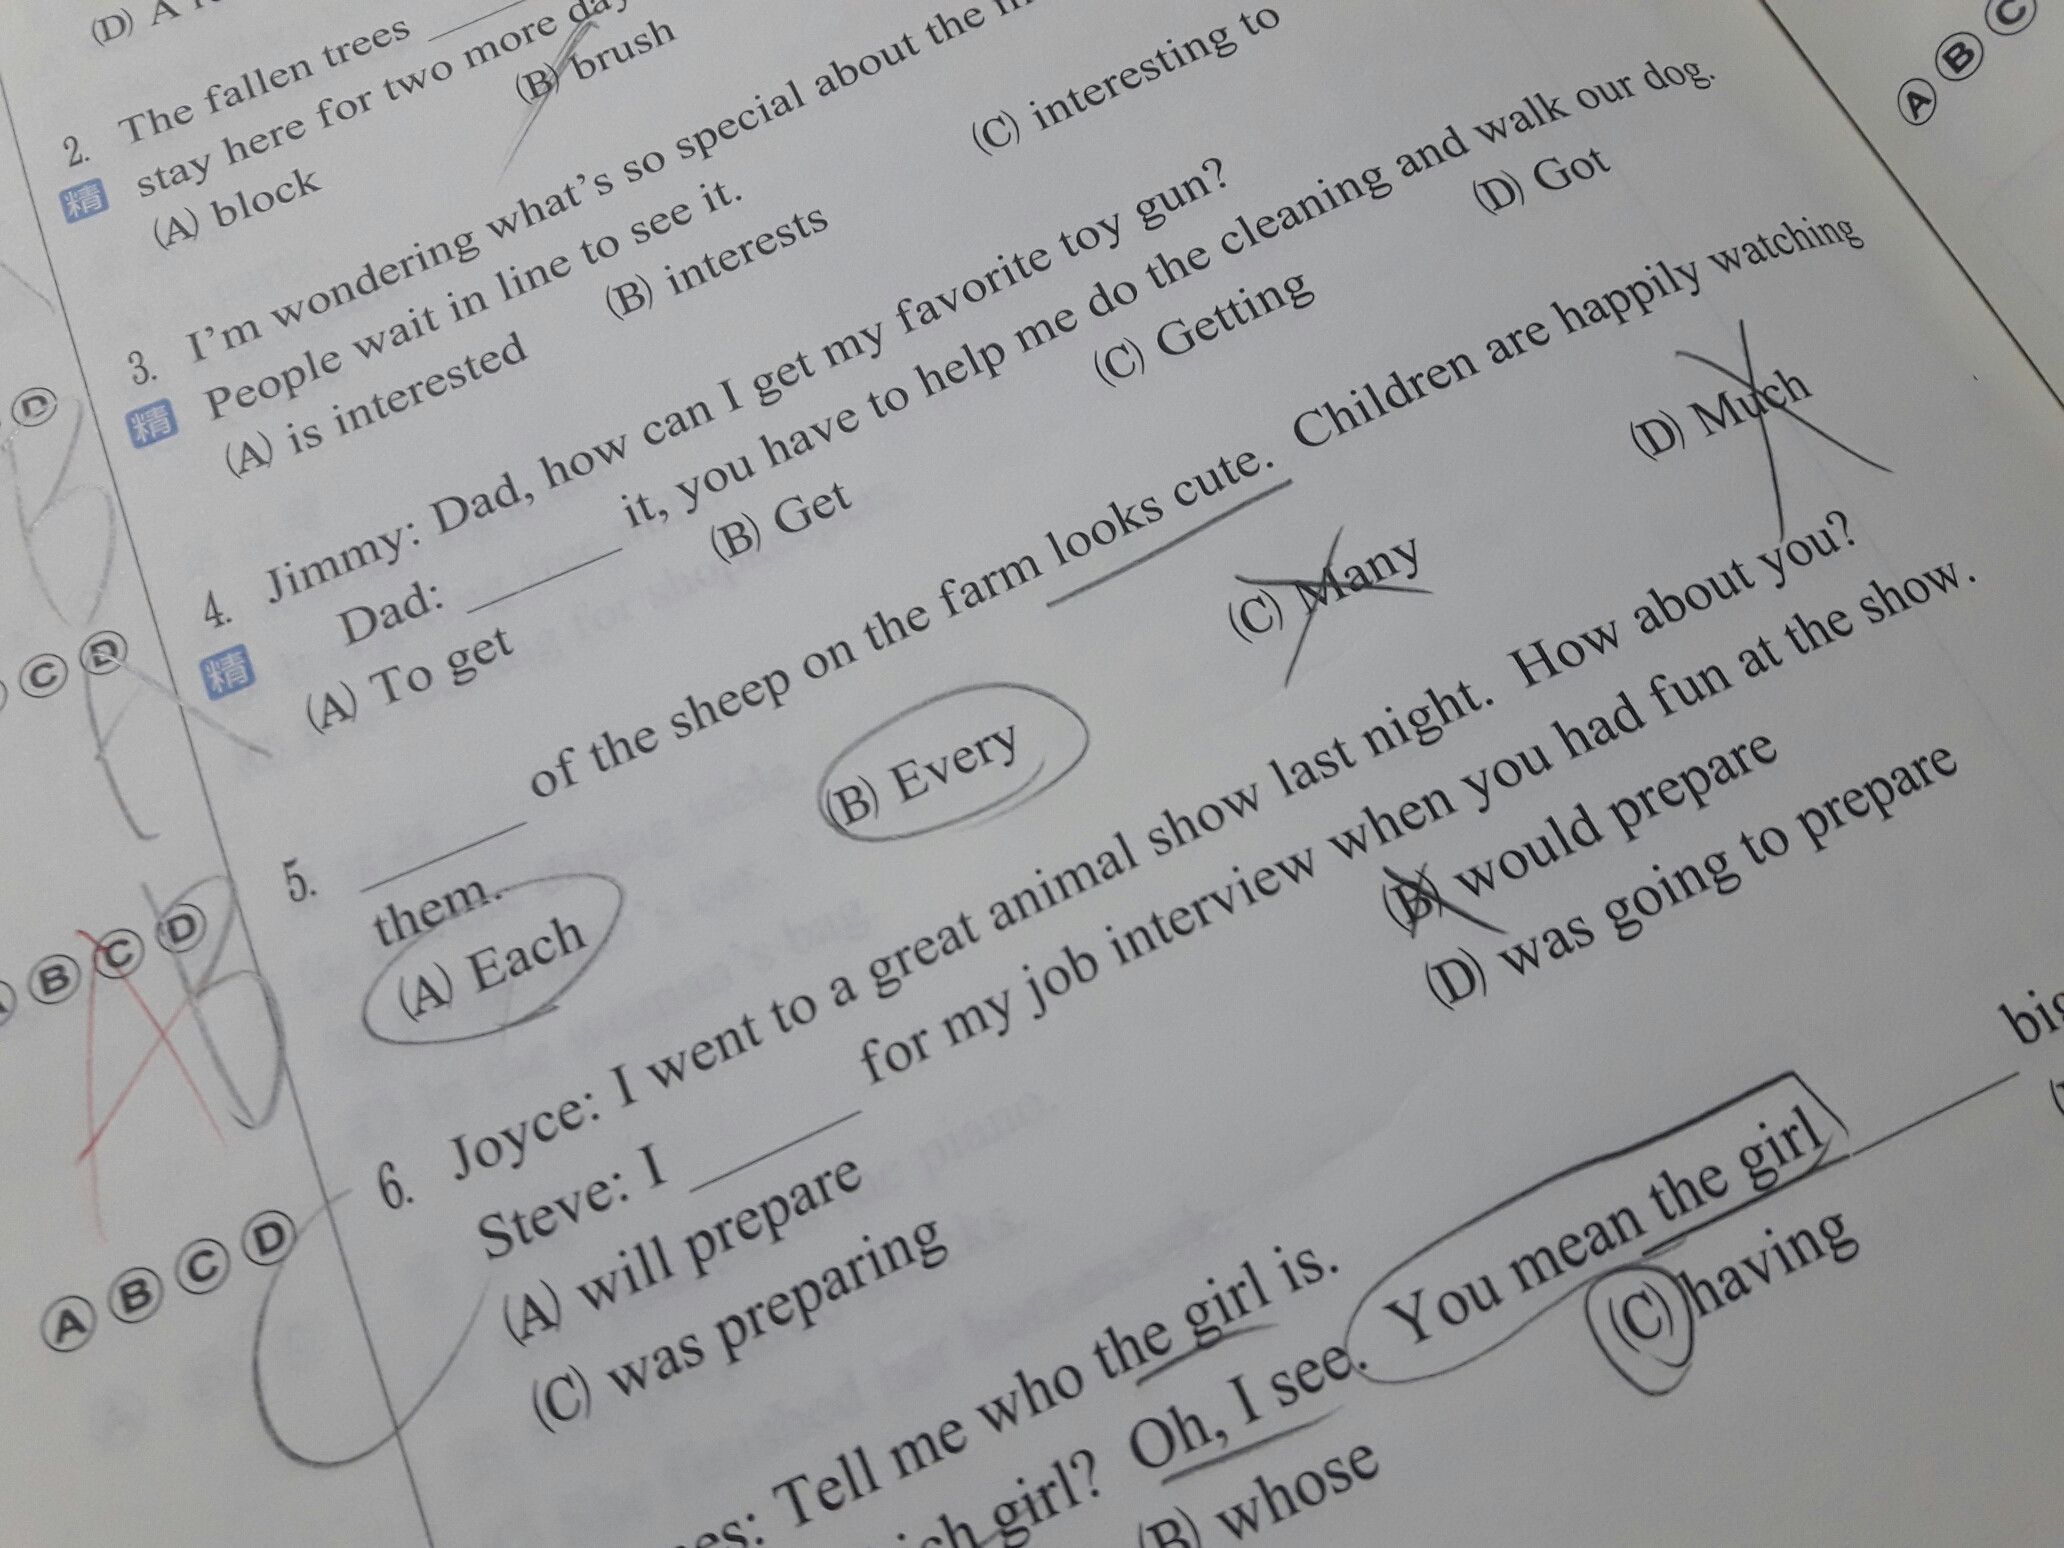 (D) A
2. The fallen trees
精 stay here for two more
(A) block (B) brush
3. I'm wondering what's so special about the
精 People wait in line to see it.
(A) is interested (B) interests (C) interesting to
4. Jimmy: Dad, how can I get my favorite toy gun?
精 Dad: ______ it, you have to help me do the cleaning and walk our dog.
(A) To get (B) Get (C) Getting (D) Got
5. ______ of the sheep on the farm looks cute. Children are happily watching
them.
(A) Each (B) Every (C) Many (D) Much
6. Joyce: I went to a great animal show last night. How about you?
Steve: I ______ for my job interview when you had fun at the show.
(A) will prepare (B) would prepare
(C) was preparing (D) was going to prepare
Tell me who the girl is.
girl? Oh, I see. You mean the girl ______
(B) whose (C) having
D
B
C D
A
B C D
A B
A B C D
C
A B C